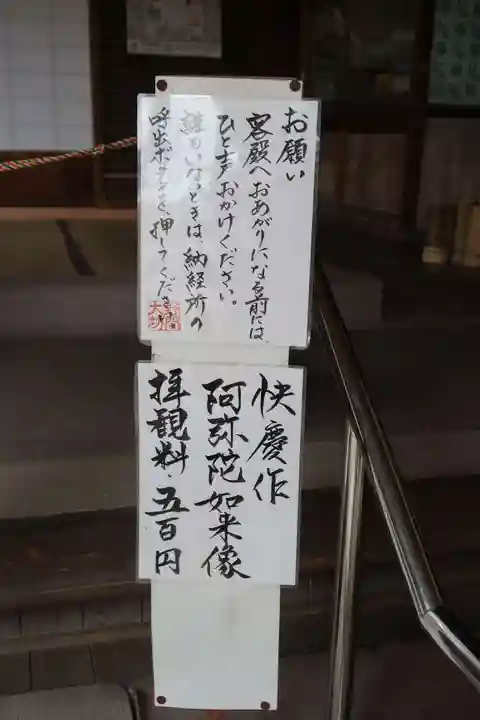 お願い
客殿へおあがりになる前には、
ひと声おかけください。
誰もいないときは、納経所の
呼出ボタンを押してください
快慶作
阿弥陀如来像
拝観料・五百円